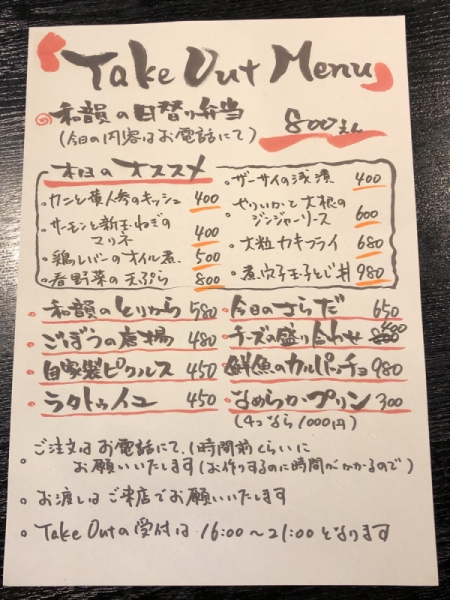 Take Out Menu
和韻の日替り弁当 800えん
(今日の内容はお電話にて)
本日のオススメ
・カニと黄人参のキッシュ 400
・サーモンと新玉ねぎの
マリネ 400
・鶏レバーのオイル煮 500
・春野菜の天ぷら 800
・ザーサイの浅漬 400
・やりいかと大根の
ジンジャーソース 600
・大粒カキフライ 680
・煮穴子玉子とじ丼 980
・和韻のとりから 580
・ごぼうの唐揚 480
・自家製ピクルス 450
・ラタトゥイユ 450
・今日のさらだ 650
・チーズの盛り合わせ 400
・鮮魚のカルパッチョ 980
・なめらかプリン 300
(4つなら1000円)
・ご注文はお電話にて、1時間前くらいに
お願いいたします(お作りするのに時間がかかるので)
・お渡しはご来店でお願いいたします
・Take Outの受付は 16:00〜21:00となります